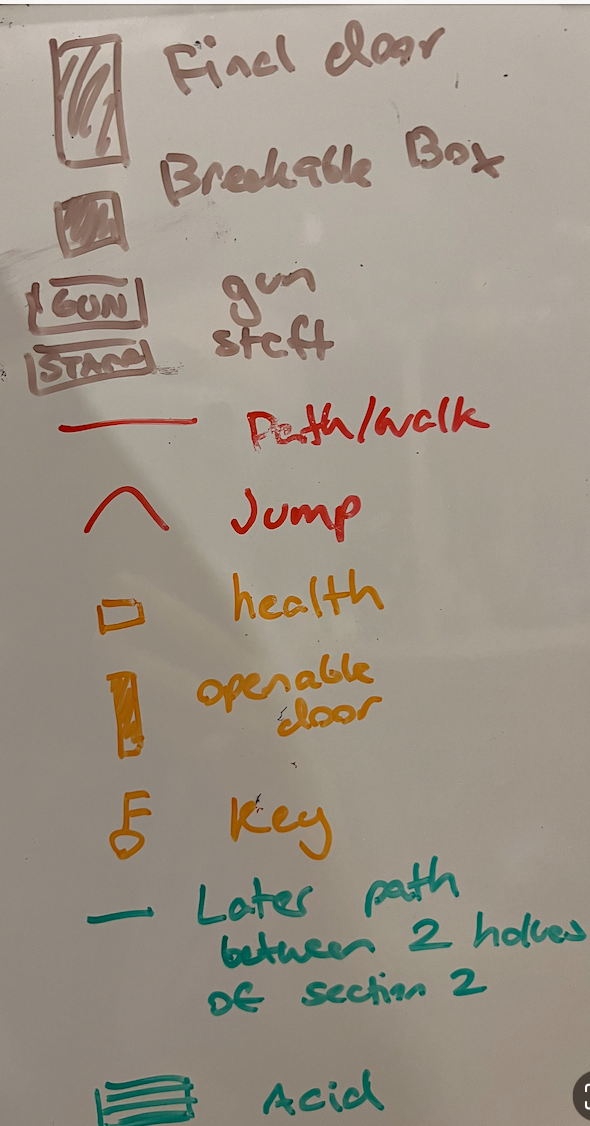 Final door
Breakable Box
GUN gun
STAFF staff
Path/walk
Jump
health
openable
door
Key
Later path
between 2 halves
OF section 2
Acid